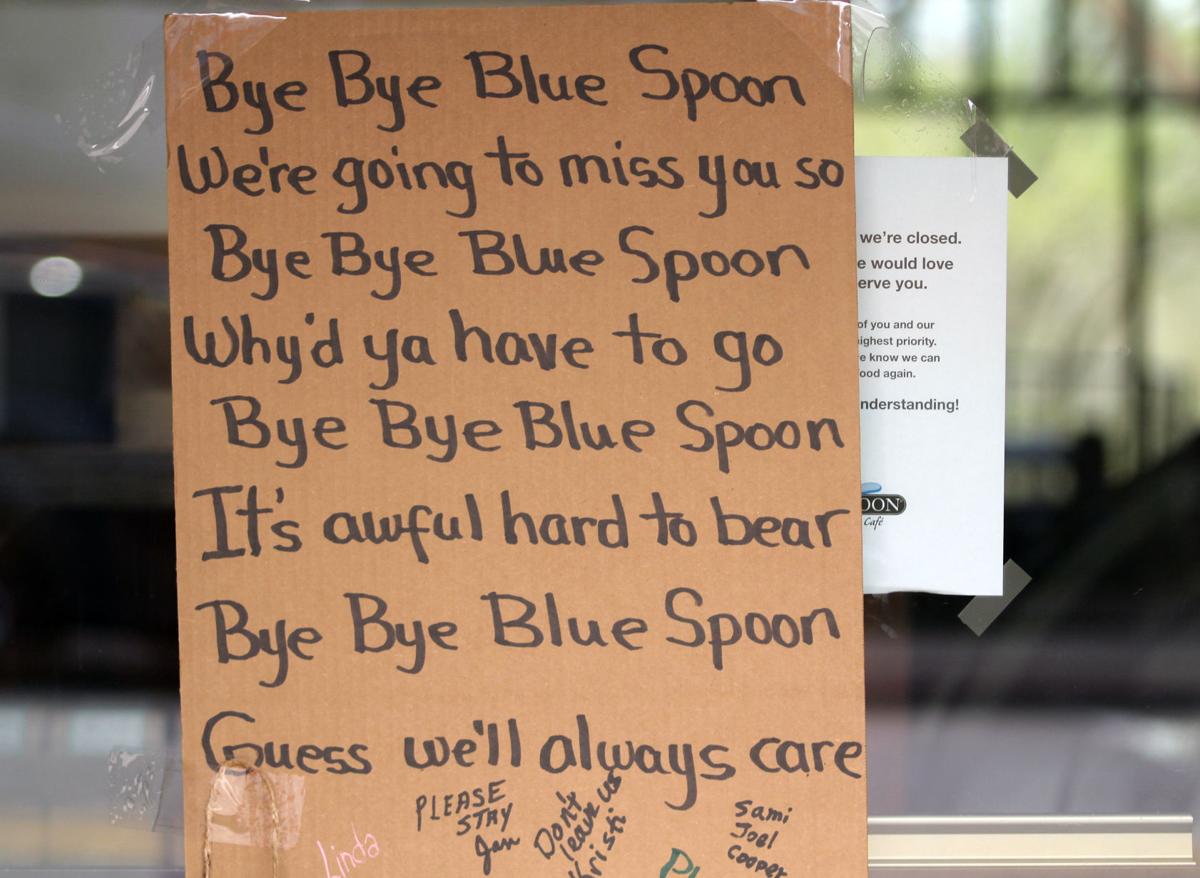 Bye Bye Blue Spoon
We're going to miss you so
Bye Bye Blue Spoon
Why'd ya have to go
Bye Bye Blue Spoon
It's awful hard to bear
Bye Bye Blue Spoon
Guess we'll always care
PLEASE
STAY
Jan
Don't
leave us
Kristi
Sami
Joel
Cooper
Linda
we're closed.
would love
you.
of you and our
priority.
know we can
again.
Café